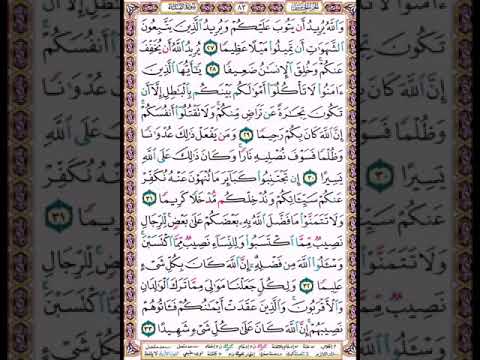 الجزء الخامس ٨٣ سورة النساء
وَاللَّهُ يُرِيدُ أَن يَتُوبَ عَلَيْكُمْ وَيُرِيدُ الَّذِينَ يَتَّبِعُونَ
الشَّهَوَاتِ أَن تَمِيلُوا مَيْلًا عَظِيمًا ٢٧ يُرِيدُ اللَّهُ أَن يُخَفِّفَ
عَنكُمْ وَخُلِقَ الْإِنسَانُ ضَعِيفًا ٢٨ يَا أَيُّهَا الَّذِينَ
ءَامَنُوا لَا تَأْكُلُوا أَمْوَالَكُم بَيْنَكُم بِالْبَاطِلِ إِلَّا أَن
تَكُونَ تِجَارَةً عَن تَرَاضٍ مِّنكُمْ وَلَا تَقْتُلُوا أَنفُسَكُمْ
إِنَّ اللَّهَ كَانَ بِكُمْ رَحِيمًا ٢٩ وَمَن يَفْعَلْ ذَٰلِكَ عُدْوَانًا
وَظُلْمًا فَسَوْفَ نُصْلِيهِ نَارًا وَكَانَ ذَٰلِكَ عَلَى اللَّهِ
يَسِيرًا ٣٠ إِن تَجْتَنِبُوا كَبَائِرَ مَا تُنْهَوْنَ عَنْهُ نُكَفِّرْ
عَنكُمْ سَيِّئَاتِكُمْ وَنُدْخِلْكُم مُّدْخَلًا كَرِيمًا ٣١
وَلَا تَتَمَنَّوْا مَا فَضَّلَ اللَّهُ بِهِ بَعْضَكُمْ عَلَىٰ بَعْضٍ لِّلرِّجَالِ
نَصِيبٌ مِّمَّا اكْتَسَبُوا وَلِلنِّسَاءِ نَصِيبٌ مِّمَّا اكْتَسَبْنَ
وَسْئَلُوا اللَّهَ مِن فَضْلِهِ إِنَّ اللَّهَ كَانَ بِكُلِّ شَيْءٍ
عَلِيمًا ٣٢ وَلِكُلٍّ جَعَلْنَا مَوَالِيَ مِمَّا تَرَكَ الْوَالِدَانِ
وَالْأَقْرَبُونَ وَالَّذِينَ عَقَدَتْ أَيْمَانُكُمْ فَآتُوهُمْ
نَصِيبَهُمْ إِنَّ اللَّهَ كَانَ عَلَىٰ كُلِّ شَيْءٍ شَهِيدًا ٣٣